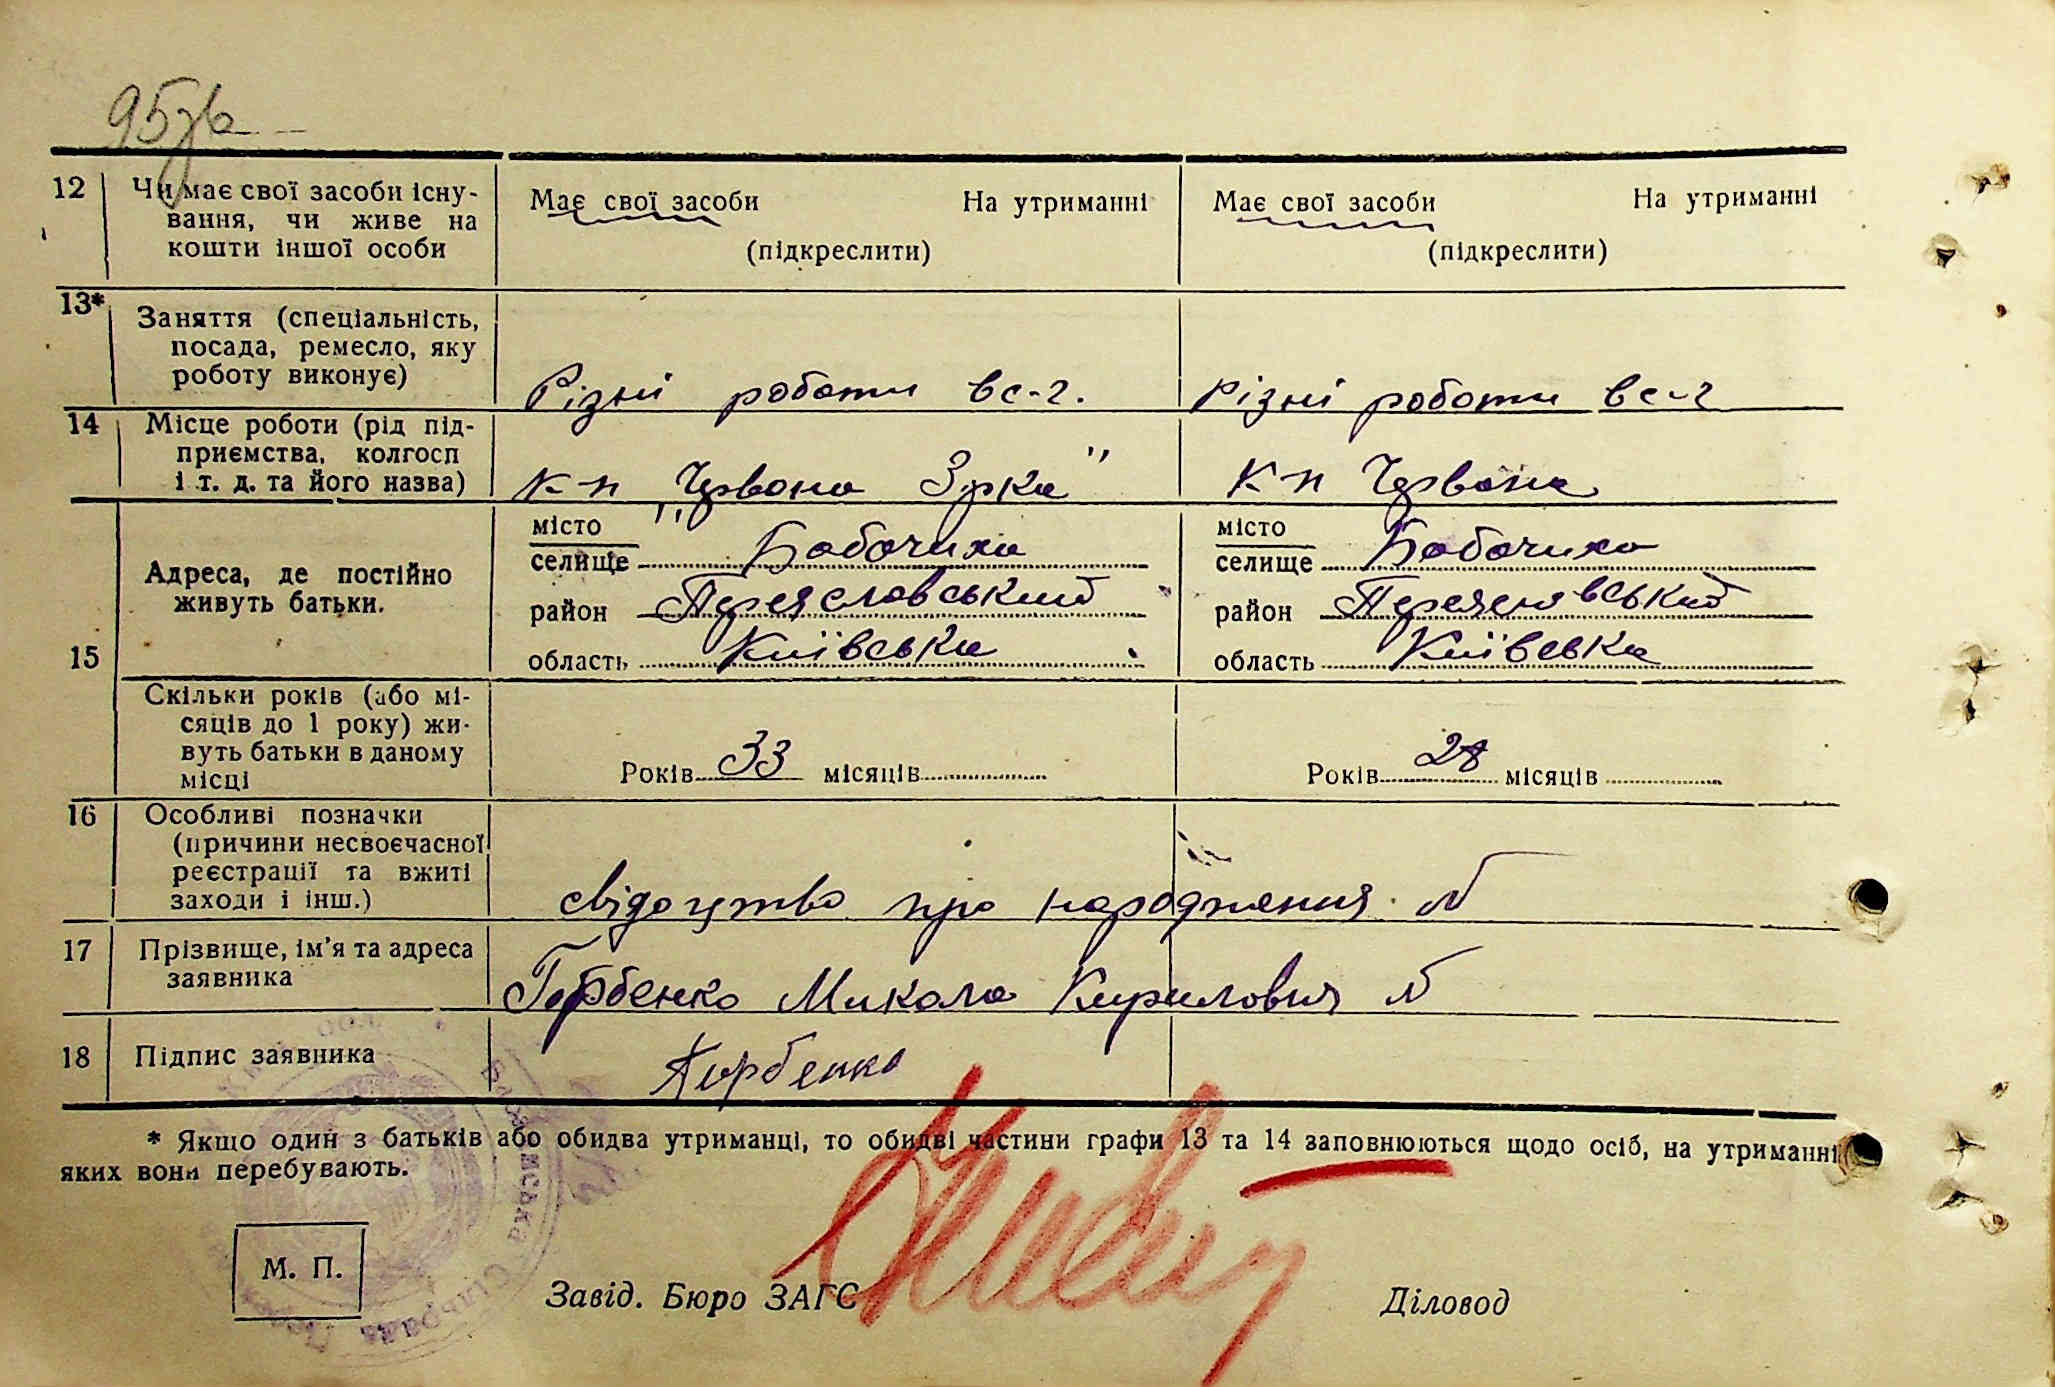 95 зв
12 Чи має свої засоби існу-
вання, чи живе на
кошти іншої особи
Має свої засоби На утриманні
(підкреслити)
Має свої засоби На утриманні
(підкреслити)
13* Заняття (спеціальність,
посада, ремесло, яку
роботу виконує)
Різні роботи в с-г.
Різні роботи в с-г
14 Місце роботи (рід під-
приємства, колгосп
і т. д. та його назва)
к-п „Червона Зірка"
к-п Червона
15 Адреса, де постійно
живуть батьки.
місто
селище Бабачиха
район Переяславський
область Київська
місто
селище Бабачиха
район Переяславський
область Київська
Скільки років (або мі-
сяців до 1 року) жи-
вуть батьки в даному
місці
Років 33 місяців
Років 28 місяців
16 Особливі позначки
(причини несвоєчасної
реєстрації та вжиті
заходи і інш.)
свідоцтво про народження №
17 Прізвище, ім'я та адреса
заявника
Горбенко Микола Кирилович
18 Підпис заявника
Горбенко
* Якщо один з батьків або обидва утриманці, то обидві частини графи 13 та 14 заповнюються щодо осіб, на утриманні
яких вони перебувають.
М. П.
Завід. Бюро ЗАГС
Діловод